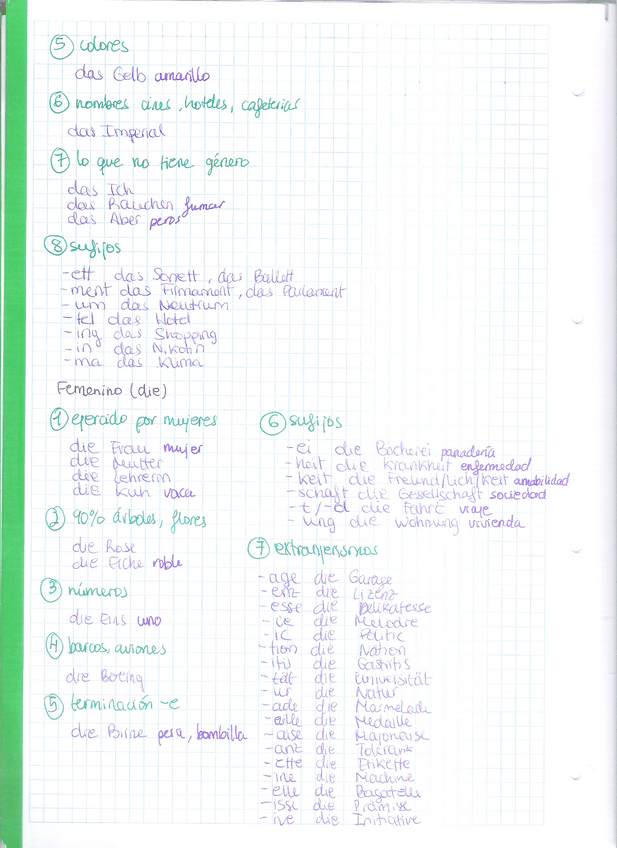 5 colores
das Gelb amarillo
6 nombres cines, hoteles, cafeterías
das Imperial
7 lo que no tiene género
das Ich
das Rauchen fumar
das Aber peros
8 sufijos
-ett das Sonett, das Ballett
-ment das Firmament, das Parlament
-um das Neutrum
-tel das Hotel
-ing das Shopping
-in das Nikotin
-ma das Klima
Femenino (die)
1 ejercido por mujeres
die Frau mujer
die Mutter
die Lehrerin
die Kuh vaca
2 90% árboles, flores
die Rose
die Eiche roble
3 números
die Eins uno
4 barcos, aviones
die Boeing
5 terminación -e
die Birne pera, bombilla
6 sufijos
-ei die Bäckerei panadería
-heit die Krankheit enfermedad
-keit die Freund/lich/keit amabilidad
-schaft die Gesellschaft sociedad
-t/-d die Fahrt viaje
-ung die Wohnung vivienda
7 extranjerismos
-age die Garage
-enz die Lizenz
-esse die Delikatesse
-ie die Melodie
-ic die Politic
-tion die Nation
-itis die Gastritis
-tät die Universität
-ur die Natur
-ade die Marmelade
-aille die Medaille
-aise die Majonaise
-anz die Toleranz
-ette die Etikette
-ine die Machine
-elle die Bagatelle
-isse die Prämisse
-ive die Initiative